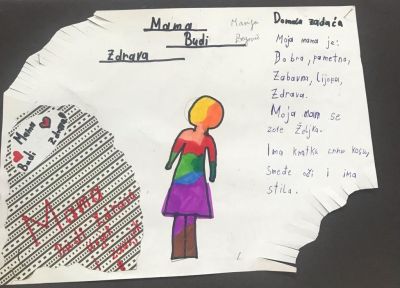 Mama
Budi
Zdrava
Domaća zadaća
Moja mama je:
Dobra, pametna,
Zabavna, lijepa,
Zdrava.
Moja mam se
zove Željka.
Ima kratku crnu kosu,
smeđe oči i ima
stila.
Mama
Budi
Zdrava!
Mama
Budi
zdrava